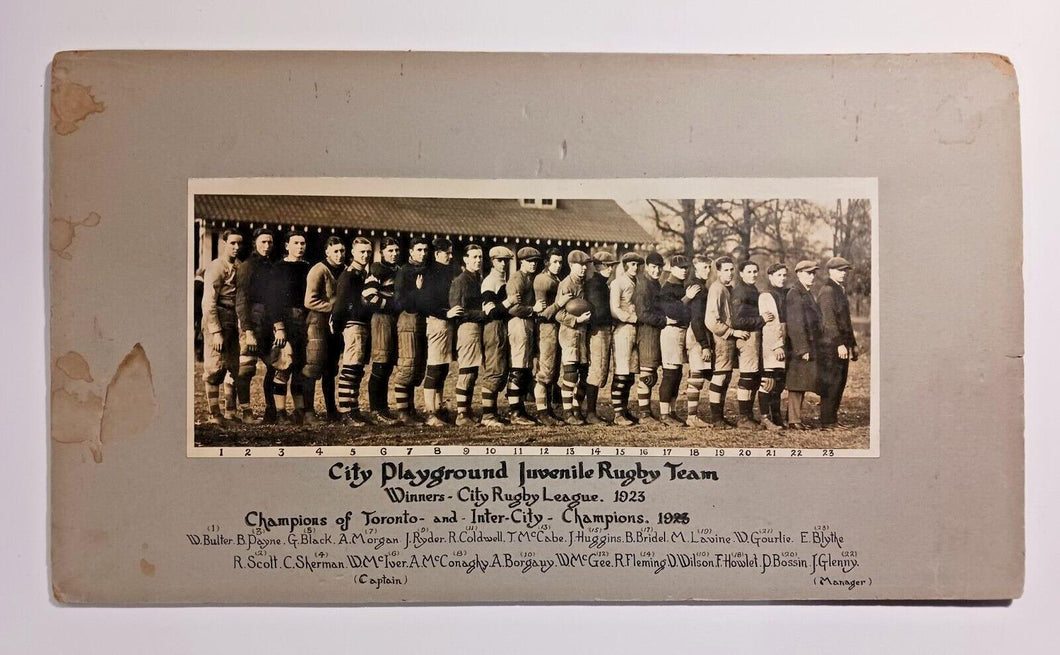 1 2 3 4 5 6 7 8 9 10 11 12 13 14 15 16 17 18 19 20 21 22 23
City Playground Juvenile Rugby Team
Winners - City Rugby League. 1923
Champions of Toronto - and - Inter-City - Champions. 1923
(1) (3) (5) (7) (9) (11) (13) (15) (17) (19) (21) (23)
W. Bulter. B. Payne. G. Black. A. Morgan. J. Ryder. R. Coldwell. T. McCabe. J. Huggins. B. Bridel. M. Lavine. W. Gourlie. E. Blythe
(2) (4) (6) (8) (10) (12) (14) (18) (20) (22)
R. Scott. C. Sherman. W. McIver. A. McConaghy. A. Borgauy. W. McGee. R. Fleming. D. Wilson. F. Howlet. P. Bossin. J. Glenny.
(Captain) (Manager)